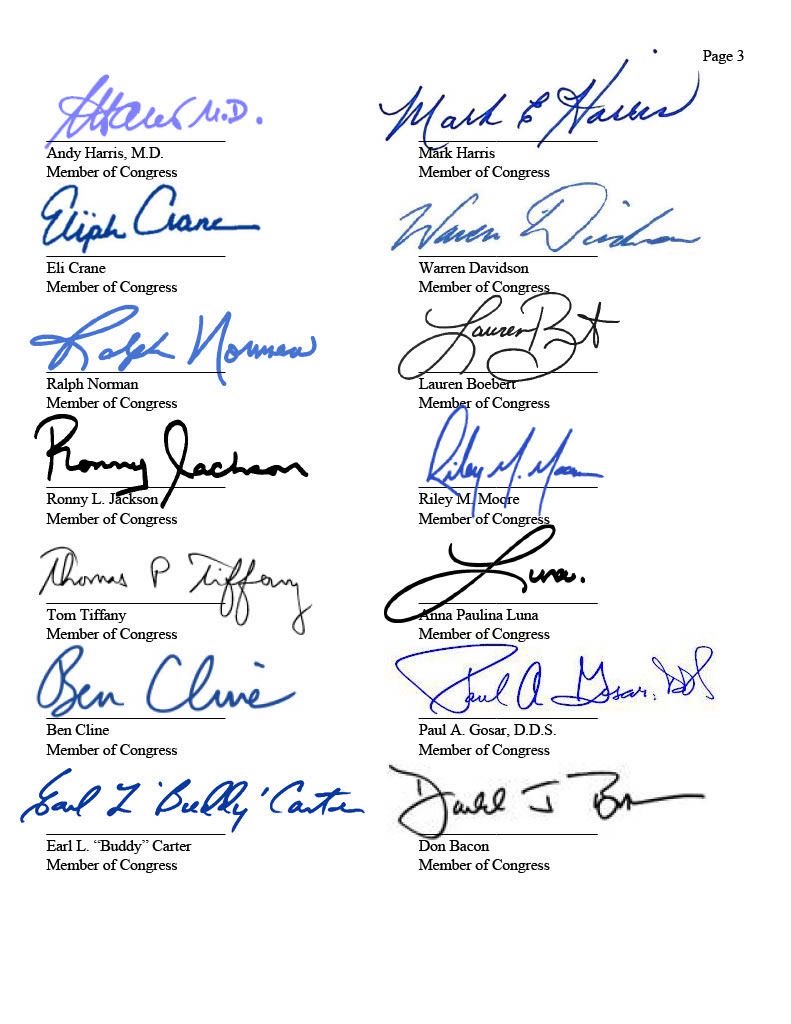 Page 3
AHarris M.D.
Mark E Harris
Andy Harris, M.D.
Mark Harris
Member of Congress
Member of Congress
Elijah Crane
Warren Davidson
Eli Crane
Warren Davidson
Member of Congress
Member of Congress
Ralph Norman
Lauren
Ralph Norman
Lauren Boebert
Member of Congress
Member of Congress
Ronny Jackson
Riley M. Moore
Ronny L. Jackson
Riley M. Moore
Member of Congress
Member of Congress
Thomas P Tiffany
Luna.
Tom Tiffany
Anna Paulina Luna
Member of Congress
Member of Congress
Ben Cline
Paul A Gosar, DDS
Ben Cline
Paul A. Gosar, D.D.S.
Member of Congress
Member of Congress
Earl L 'Buddy' Carter
J
Earl L. “Buddy” Carter
Don Bacon
Member of Congress
Member of Congress